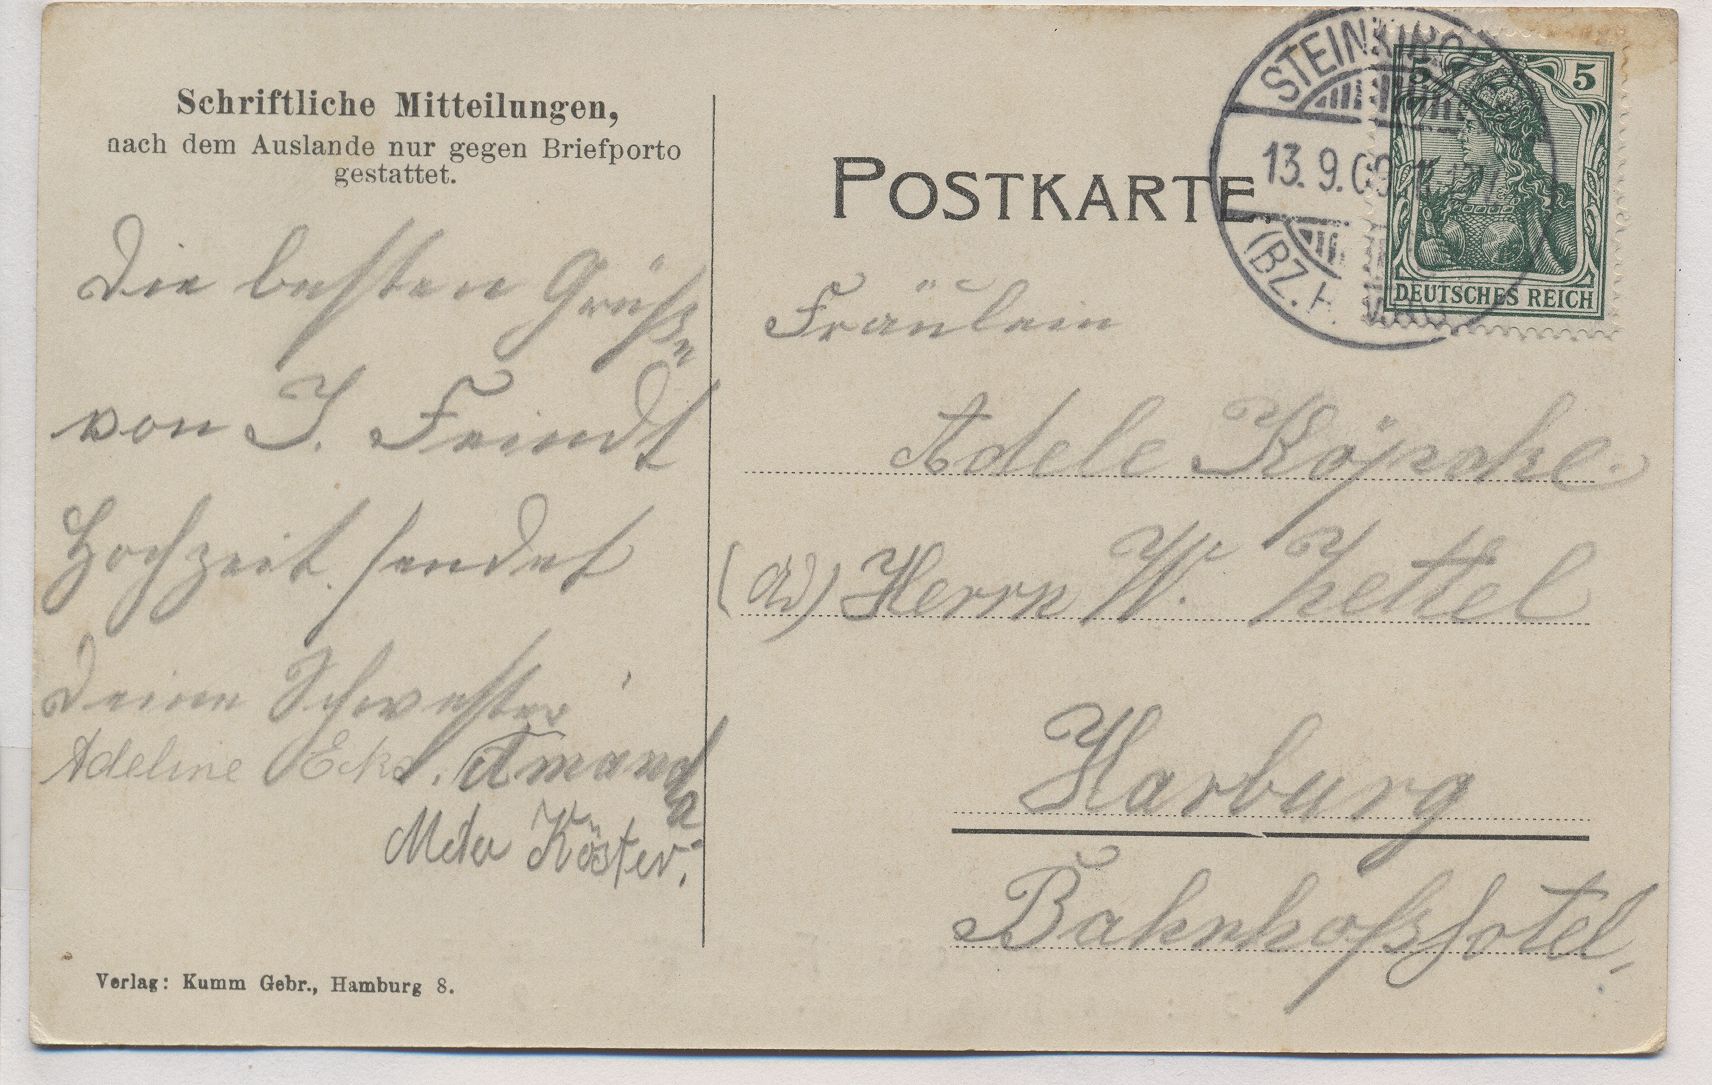 Schriftliche Mitteilungen,
nach dem Auslande nur gegen Briefporto
gestattet.
Die besten Grüße
von J. Feindt
Hochzeit sendet
Deine Schwester
Adeline Eks. Amanda
Meta Köster.
Verlag: Kumm Gebr., Hamburg 8.
POSTKARTE.
STEINKIRCHEN
13.9.09
(BZ. H
5 5
DEUTSCHES REICH
Fräulein
Adele Köpcke.
Herrn W. Zettel
Harburg
Bahnhofshotel.